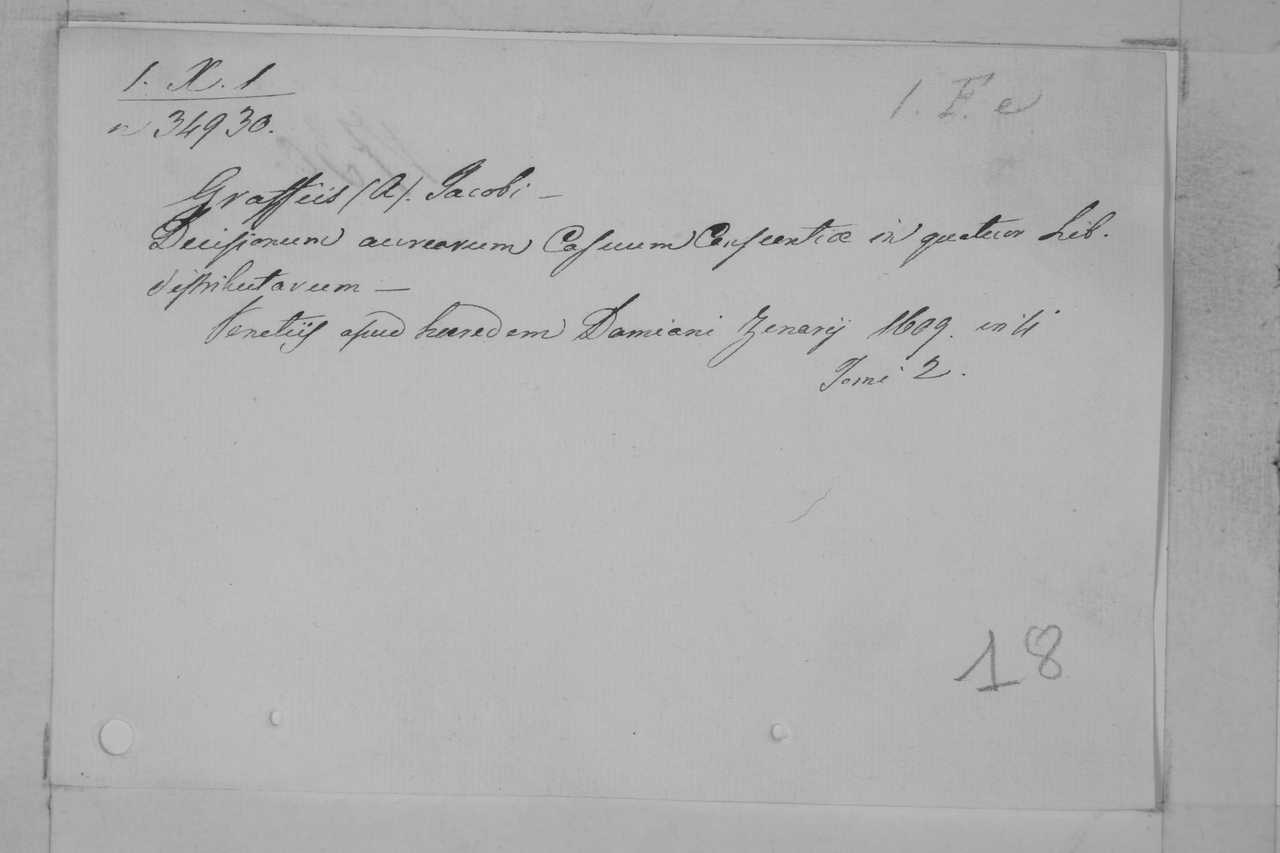 1. X. 1
n 34930.
1. F. e
Graffiis (A). Jacobi —
Decisionum aurearum Casuum Conscientiæ in quatuor Lib.
distributarum —
Venetiis apud hæredem Damiani Zenarij 1609. in 4
Tomi 2.
18